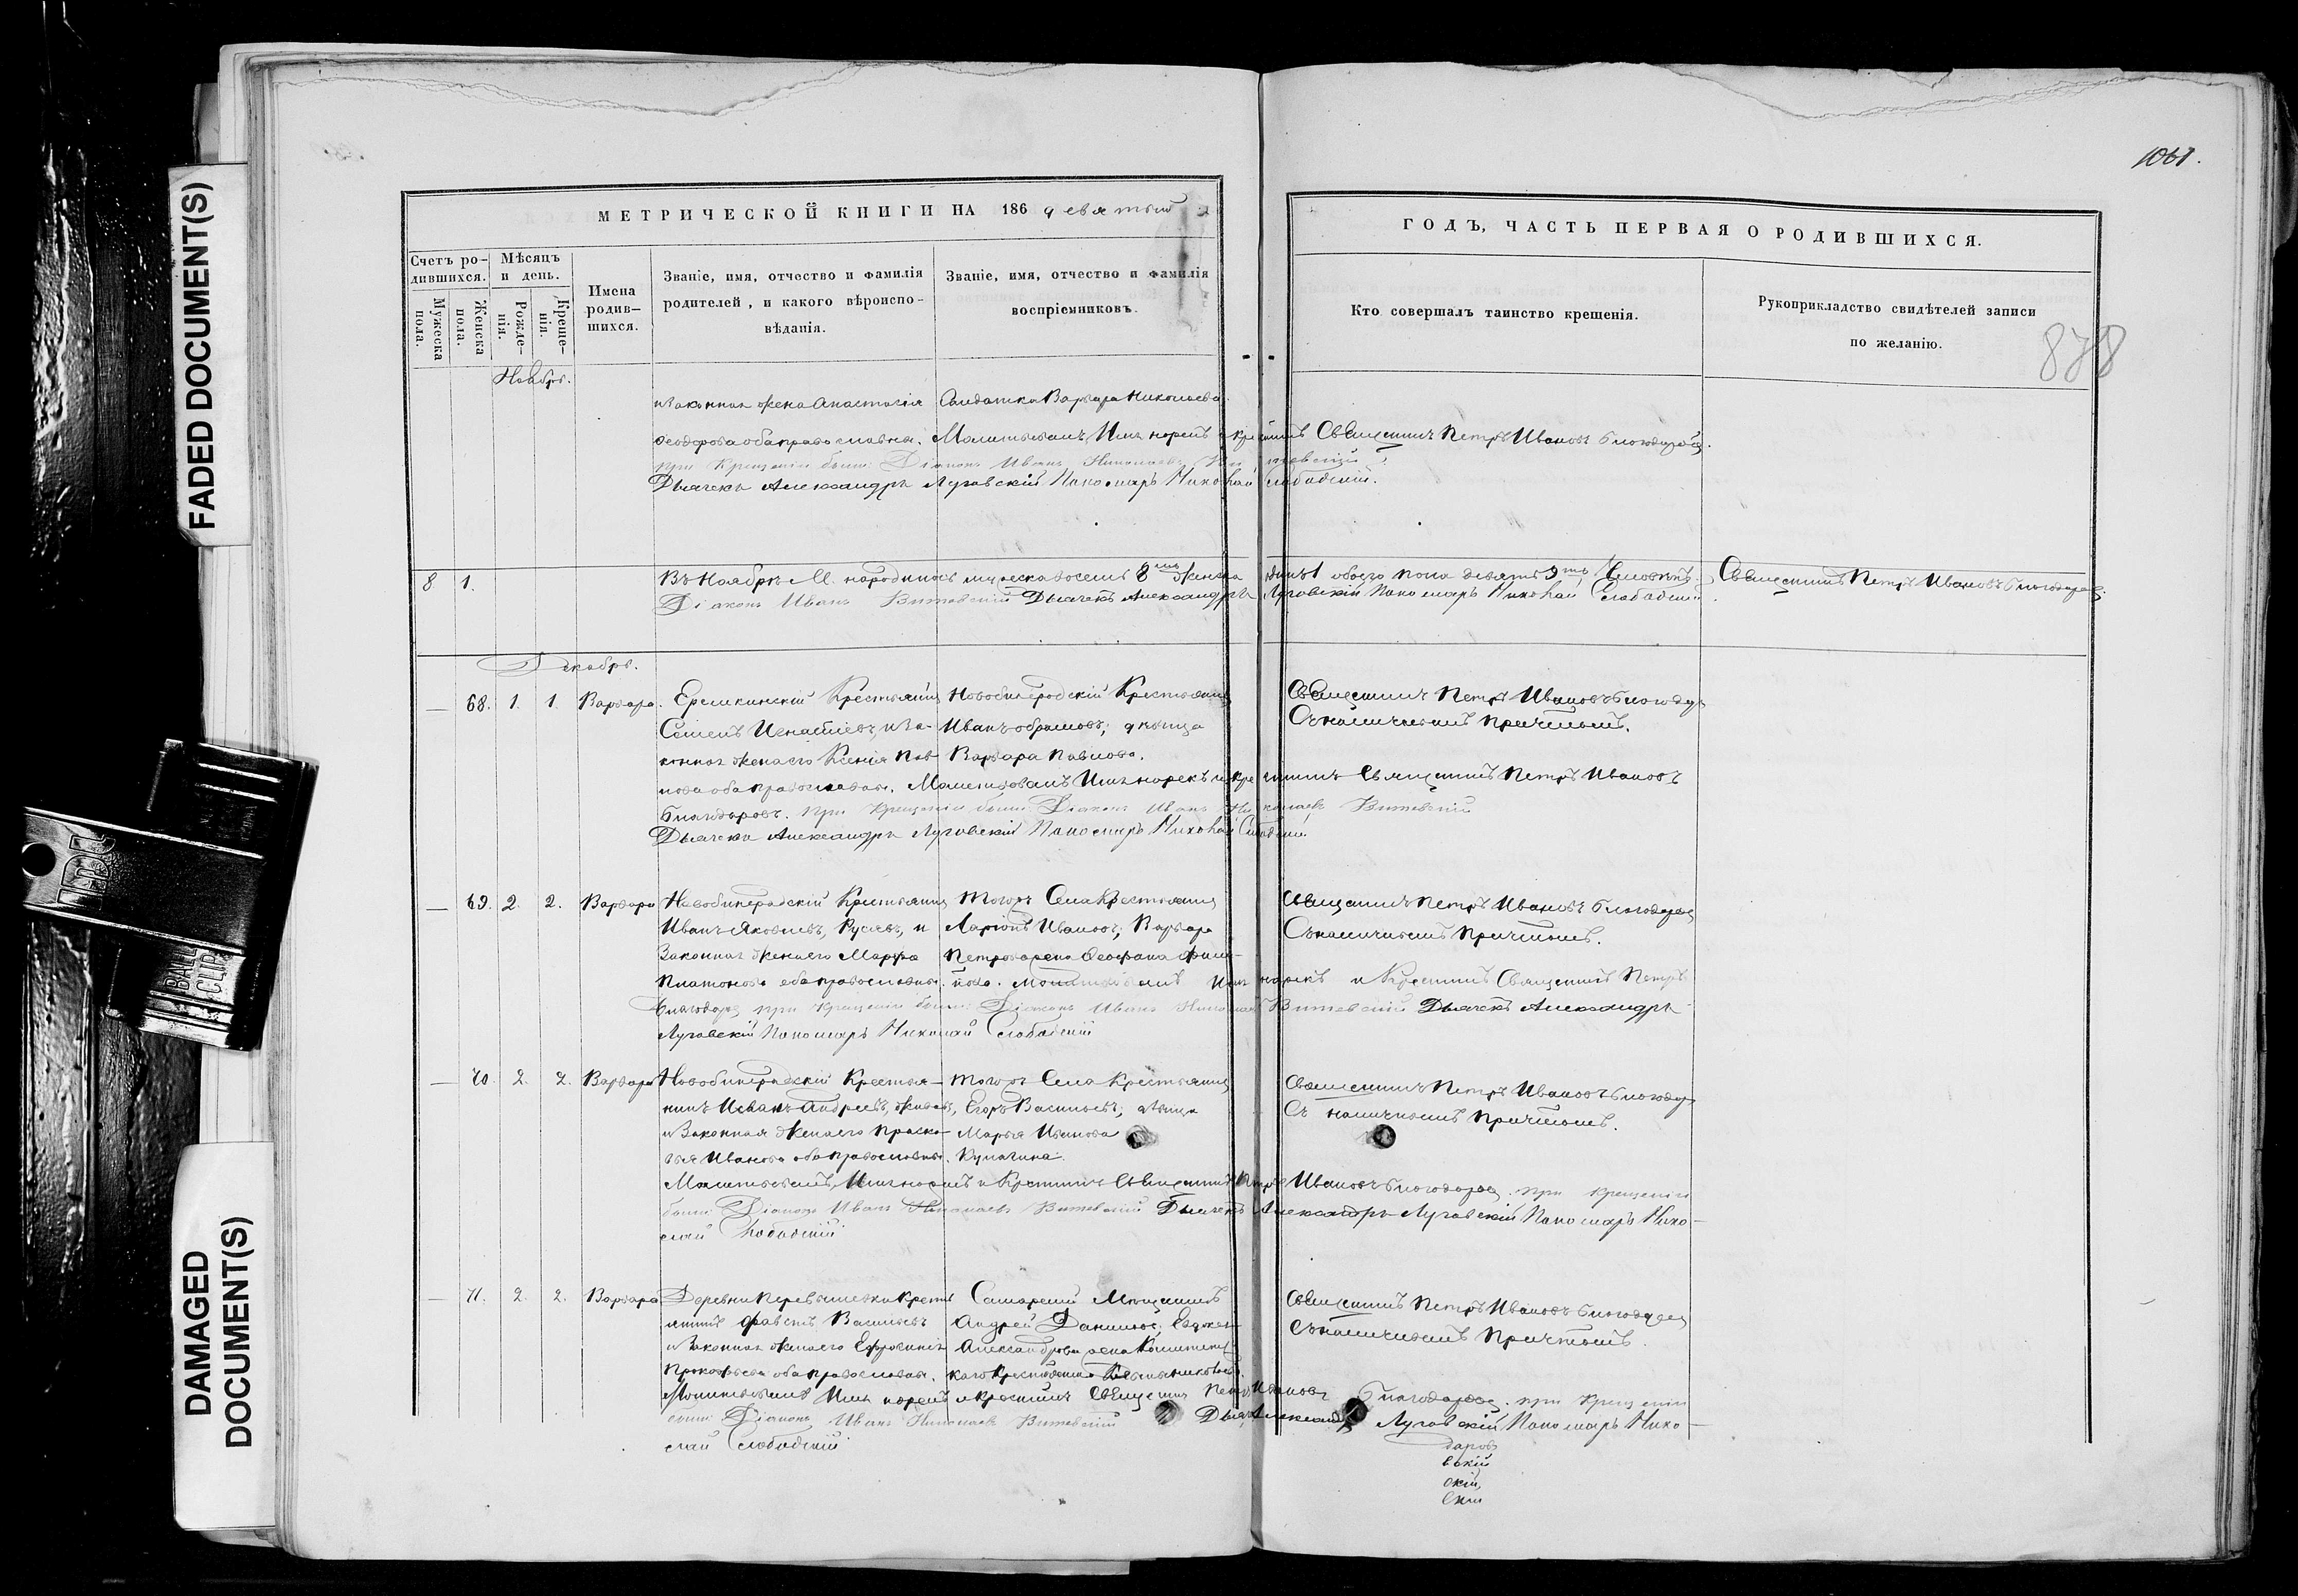 FADED DOCUMENT(S)
DAMAGED DOCUMENT(S)
BALL CLIP
1061.
878
МЕТРИЧЕСКОЙ КНИГИ НА 186 девятый
ГОДЪ, ЧАСТЬ ПЕРВАЯ О РОДИВШИХСЯ.
Счетъ родившихся.
Мужеска пола.
Женска пола.
Мѣсяцъ и день.
Рожденія.
Крещенія.
Имена родившихся.
Званіе, имя, отчество и фамилія родителей, и какого вѣроисповѣданія.
Званіе, имя, отчество и фамилія воспріемниковъ.
Кто совершалъ таинство крещенія.
Рукоприкладство свидѣтелей записи по желанію.
Ноябрь.
и Законная жена Анастасія Солдатка Варвара Николаева.
Феодорова оба православны. Молитвовалъ, Имя нарекъ и крестилъ Священникъ Петръ Ивановъ Благодаровъ.
при Крещеніи были: Діаконъ Иванъ Николаевъ Витевскій
Дьячекъ Александръ Луговскій Пономарь Николай Слободскій.
8 1. Въ Ноябрѣ М. народилось мужеска восемь 8мь женска одинъ 1 обоего пола девять 9ть Человѣкъ. Священникъ Петръ Ивановъ Благодаровъ.
Діаконъ Иванъ Витевскій Дьячекъ Александръ Луговскій Пономарь Николай Слободскій.
Декабрь.
— 68. 1. 1. Варвара. Крестьянинъ Новобинарадскій Крестьянинъ Священникъ Петръ Ивановъ Благодар
Семенъ Игнатіевъ, и За- Иванъ Абрамовъ; дѣвица Съ наличнымъ Причтомъ.
конная жена его Ксенія Пав- Варвара Павлова.
лова оба православны. Молитвовалъ Имя нарекъ и крестилъ Священникъ Петръ Ивановъ
Благодаровъ. при Крещеніи были: Діаконъ Иванъ Николаевъ Витевскій
Дьячекъ Александръ Луговскій Пономарь Николай Слободскій.
— 69. 2. 2. Варвара Новобинарадскій Крестьянинъ Тогожъ Села Крестьянинъ Священникъ Петръ Ивановъ Благодаровъ
Иванъ Яковлевъ, и Ларіонъ Ивановъ; Варвара Съ наличнымъ Причтомъ.
Законная жена его Марфа Петрова
Платонова оба православны. Молитвовалъ Имя нарекъ и Крестилъ Священникъ Петръ
Благодаровъ при Крещеніи были: Діаконъ Иванъ Николаевъ Витевскій Дьячекъ Александръ
Луговскій Пономарь Николай Слободскій
— 70. 2. 2. Варвара Новобинарадскій Крестья- Тогожъ Села Крестьянинъ Священникъ Петръ Ивановъ Благодар
нинъ Иванъ Андреевъ, Егоръ Васильевъ; дѣвица Съ наличнымъ Причтомъ.
и Законная жена его Праско- Марья Иванова
вья Иванова оба православны. Кулагина.
Молитвовалъ, Имя нарекъ и Крестилъ Священникъ Петръ Ивановъ Благодаровъ. при крещеніи
были: Діаконъ Иванъ Николаевъ Витевскій Дьячекъ Александръ Луговскій Пономарь Нико-
лай Слободскій
— 71. 2. 2. Варвара Деревни Кресть- Самарскій Мѣщанинъ Священникъ Петръ Ивановъ Благодаровъ
янинъ Васильевъ Андрей Даниловъ; Съ наличнымъ Причтомъ.
и Законная жена его Ефросинья Александрова
Прокофьева оба православны.
Молитвовалъ Имя нарекъ и крестилъ Священникъ Петръ Ивановъ Благодаровъ. при Крещеніи
были: Діаконъ Иванъ Николаевъ Витевскій Дьячекъ Александръ Луговскій Пономарь Нико-
лай Слободскій
даровъ
вскій
скій,
скій